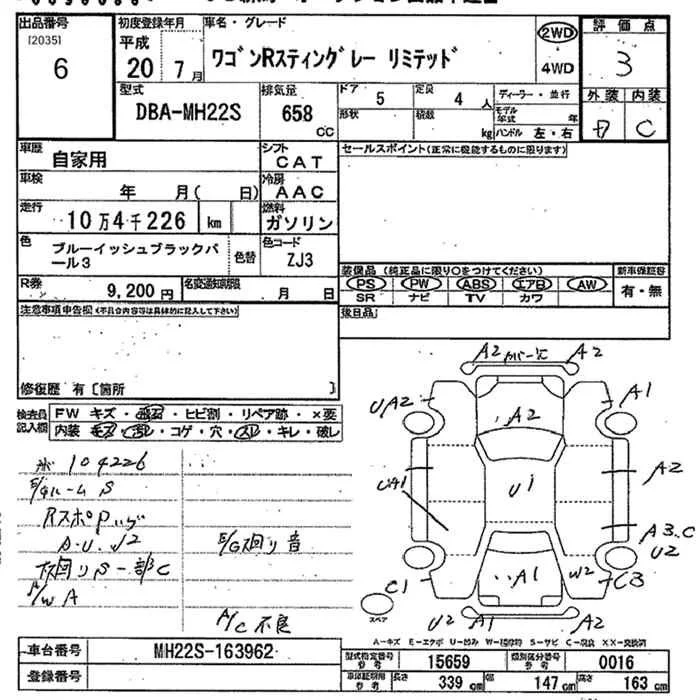 出品番号
[20351
6
初度登録年月
平成
20 7月
車名・グレード
ワゴンRスティングレー リミテッド
2WD
4WD
評価点
3
外装 内装
C
型式
DBA-MH22S
排気量
658
CC
ドア
5
定員
4人
形状
積載
kg
ディーラー・並行
モデル年式
年
ハンドル 左・右
車歴
自家用
シフト
CAT
セールスポイント(正常に機能するものに限ります)
車検
年 月( 日)
冷房
AAC
走行
10万4千226 km
燃料
ガソリン
色
ブルーイッシュブラックパール3
色替
色コード
ZJ3
R券
9,200円
名変通知期限
月 日
装備品(純正品に限り○をつけてください)
新車保証書
PS PW ABS エアB AW
SR ナビ TV カワ
有・無
後日品
注意事項申告欄(不具合内容等は具体的に記入して下さい)
修復歴 有〔箇所 〕
検査員記入欄
FW キズ・飛石・ヒビ割・リペア跡・×要
内装 キズ・汚レ・コゲ・穴・スレ・キレ・破レ
104226
E/Gルーム S
RスポP
A.U. √2
下回りS一部C
A/W A
E/G回り音
A/C不良
A2 A2
UA2
A1
A2
UA1
U1
A2
A3.C
U2
C1
A1
W2
C3
U2 A1 A2
スペア
A-キズ E-エクボ U-凹み W-補修跡 S-サビ C-腐食 XX-交換済
車台番号
MH22S-163962
登録番号
型式指定番号
参考
15659
類別区分番号
参考
0016
車検証期用
参考
長さ
339 cm
幅
147 cm
高さ
163 cm